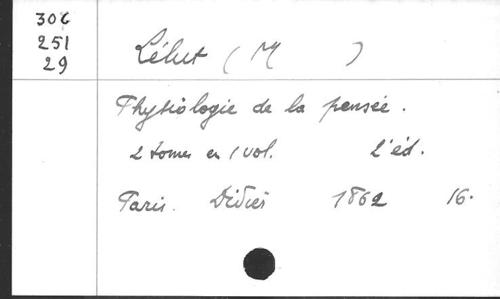 306
251
29
Lélut (M )
Physiologie de la pensée.
2 tomes en 1 vol. 2'éd.
Paris. Didier 1862 16.